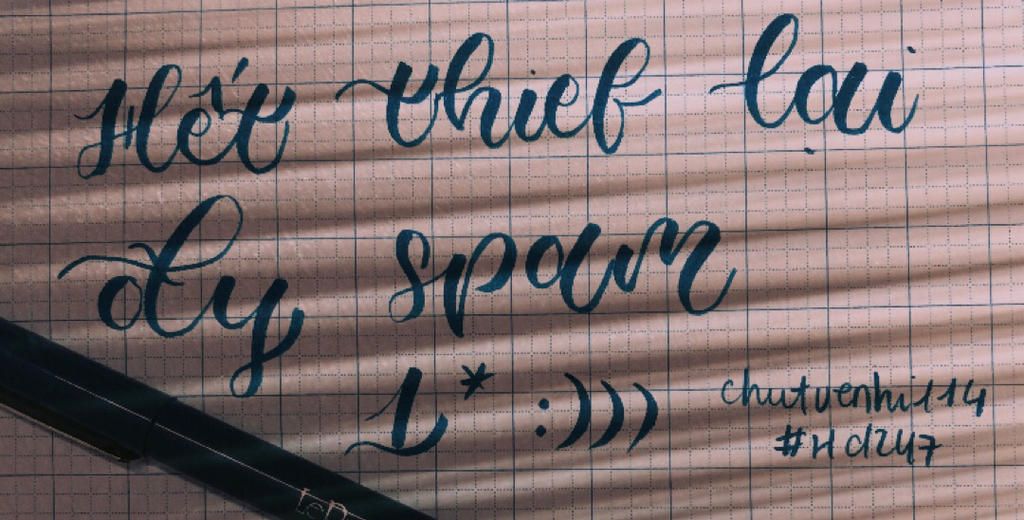 Hết thief lại
đy spam
1* :)))
chutuenhi114
#Hd247